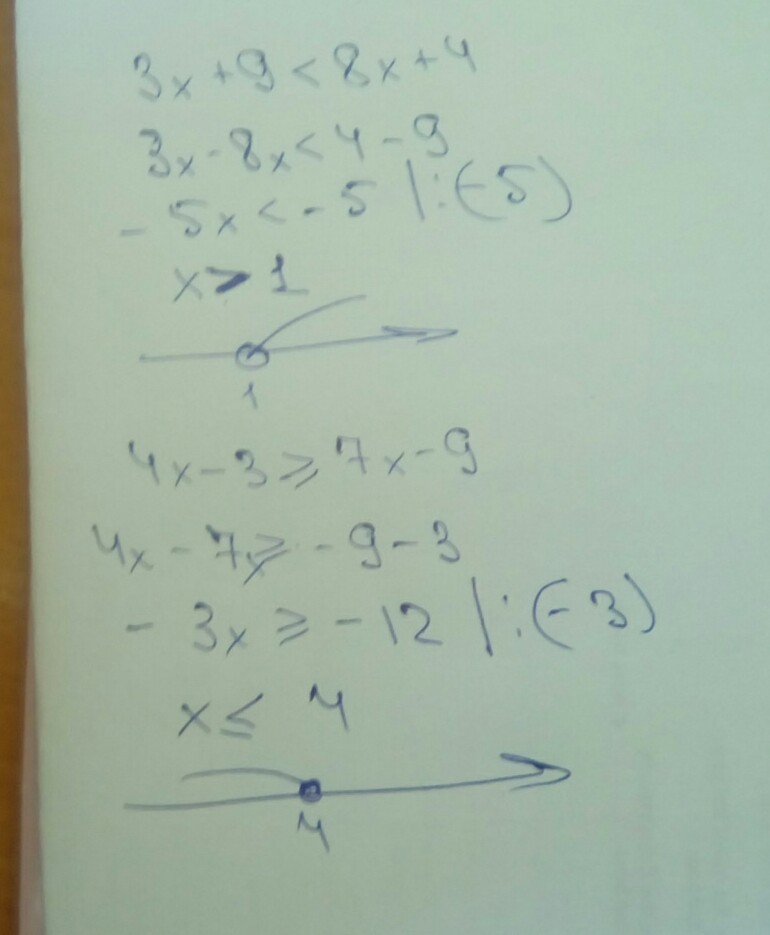 3x+9<8x+4
3x-8x<4-9
-5x<-5 |:(-5)
x>1
1
4x-3⩾7x-9
4x-7x⩾-9-3
-3x⩾-12 |:(-3)
x≤4
4